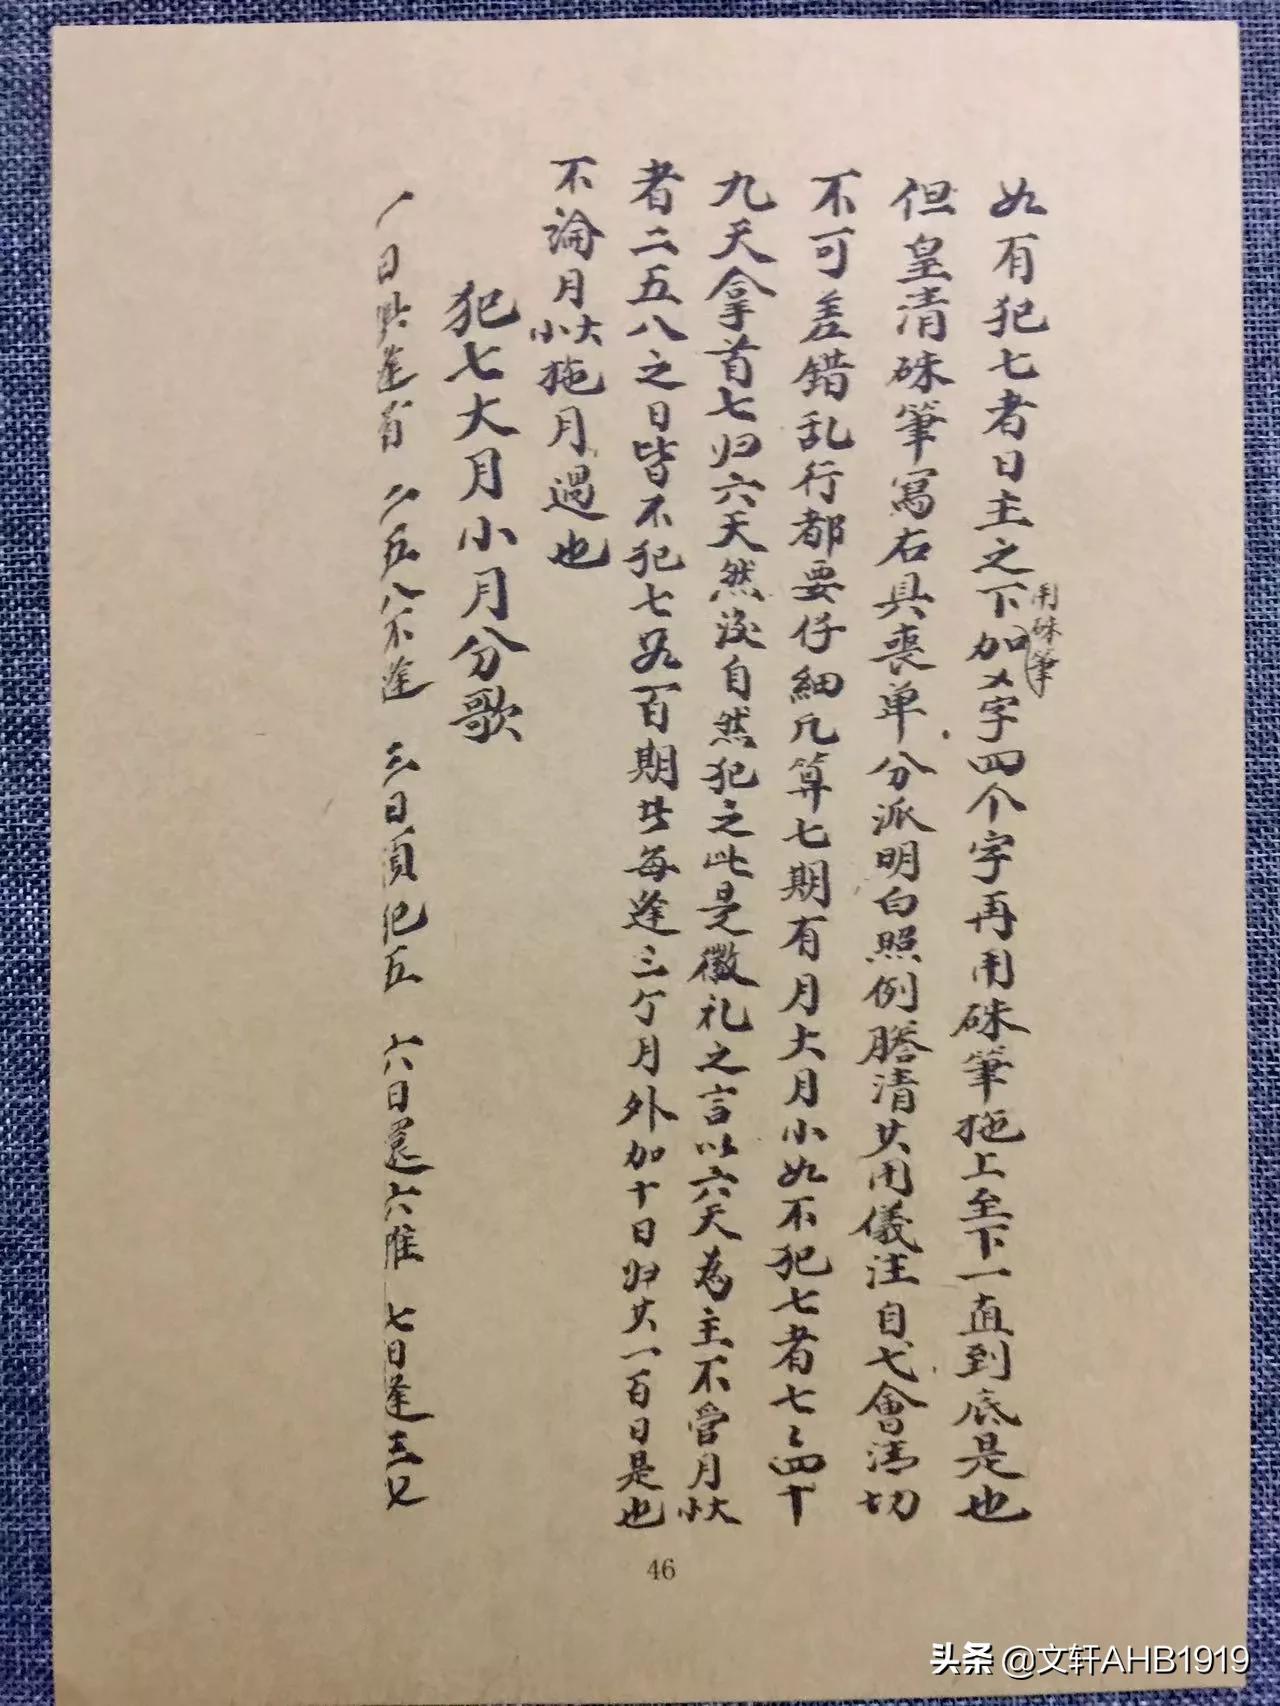 如有犯七者日主之下加乂字四个字再用硃筆拖上至下一直到底是也
用硃筆
但皇清硃筆寫右具喪单分派明白照例謄清共用儀注自弋會清切
不可差錯乱行都要仔細凡算七期有月大月小如不犯七者七〻四十
九天拿首七归六天然没自然犯之此是徽礼之言以六天為主不管月大小
者二五八之日皆不犯七如百期共每逢三个月外加十日归共一百日是也
不論月大小以拖月遇也
犯七大月小月分歌
一日逢肖 二五八不逢 三日須犯五 六日還六推 七日逢三七
46
头条 @文轩AHB1919